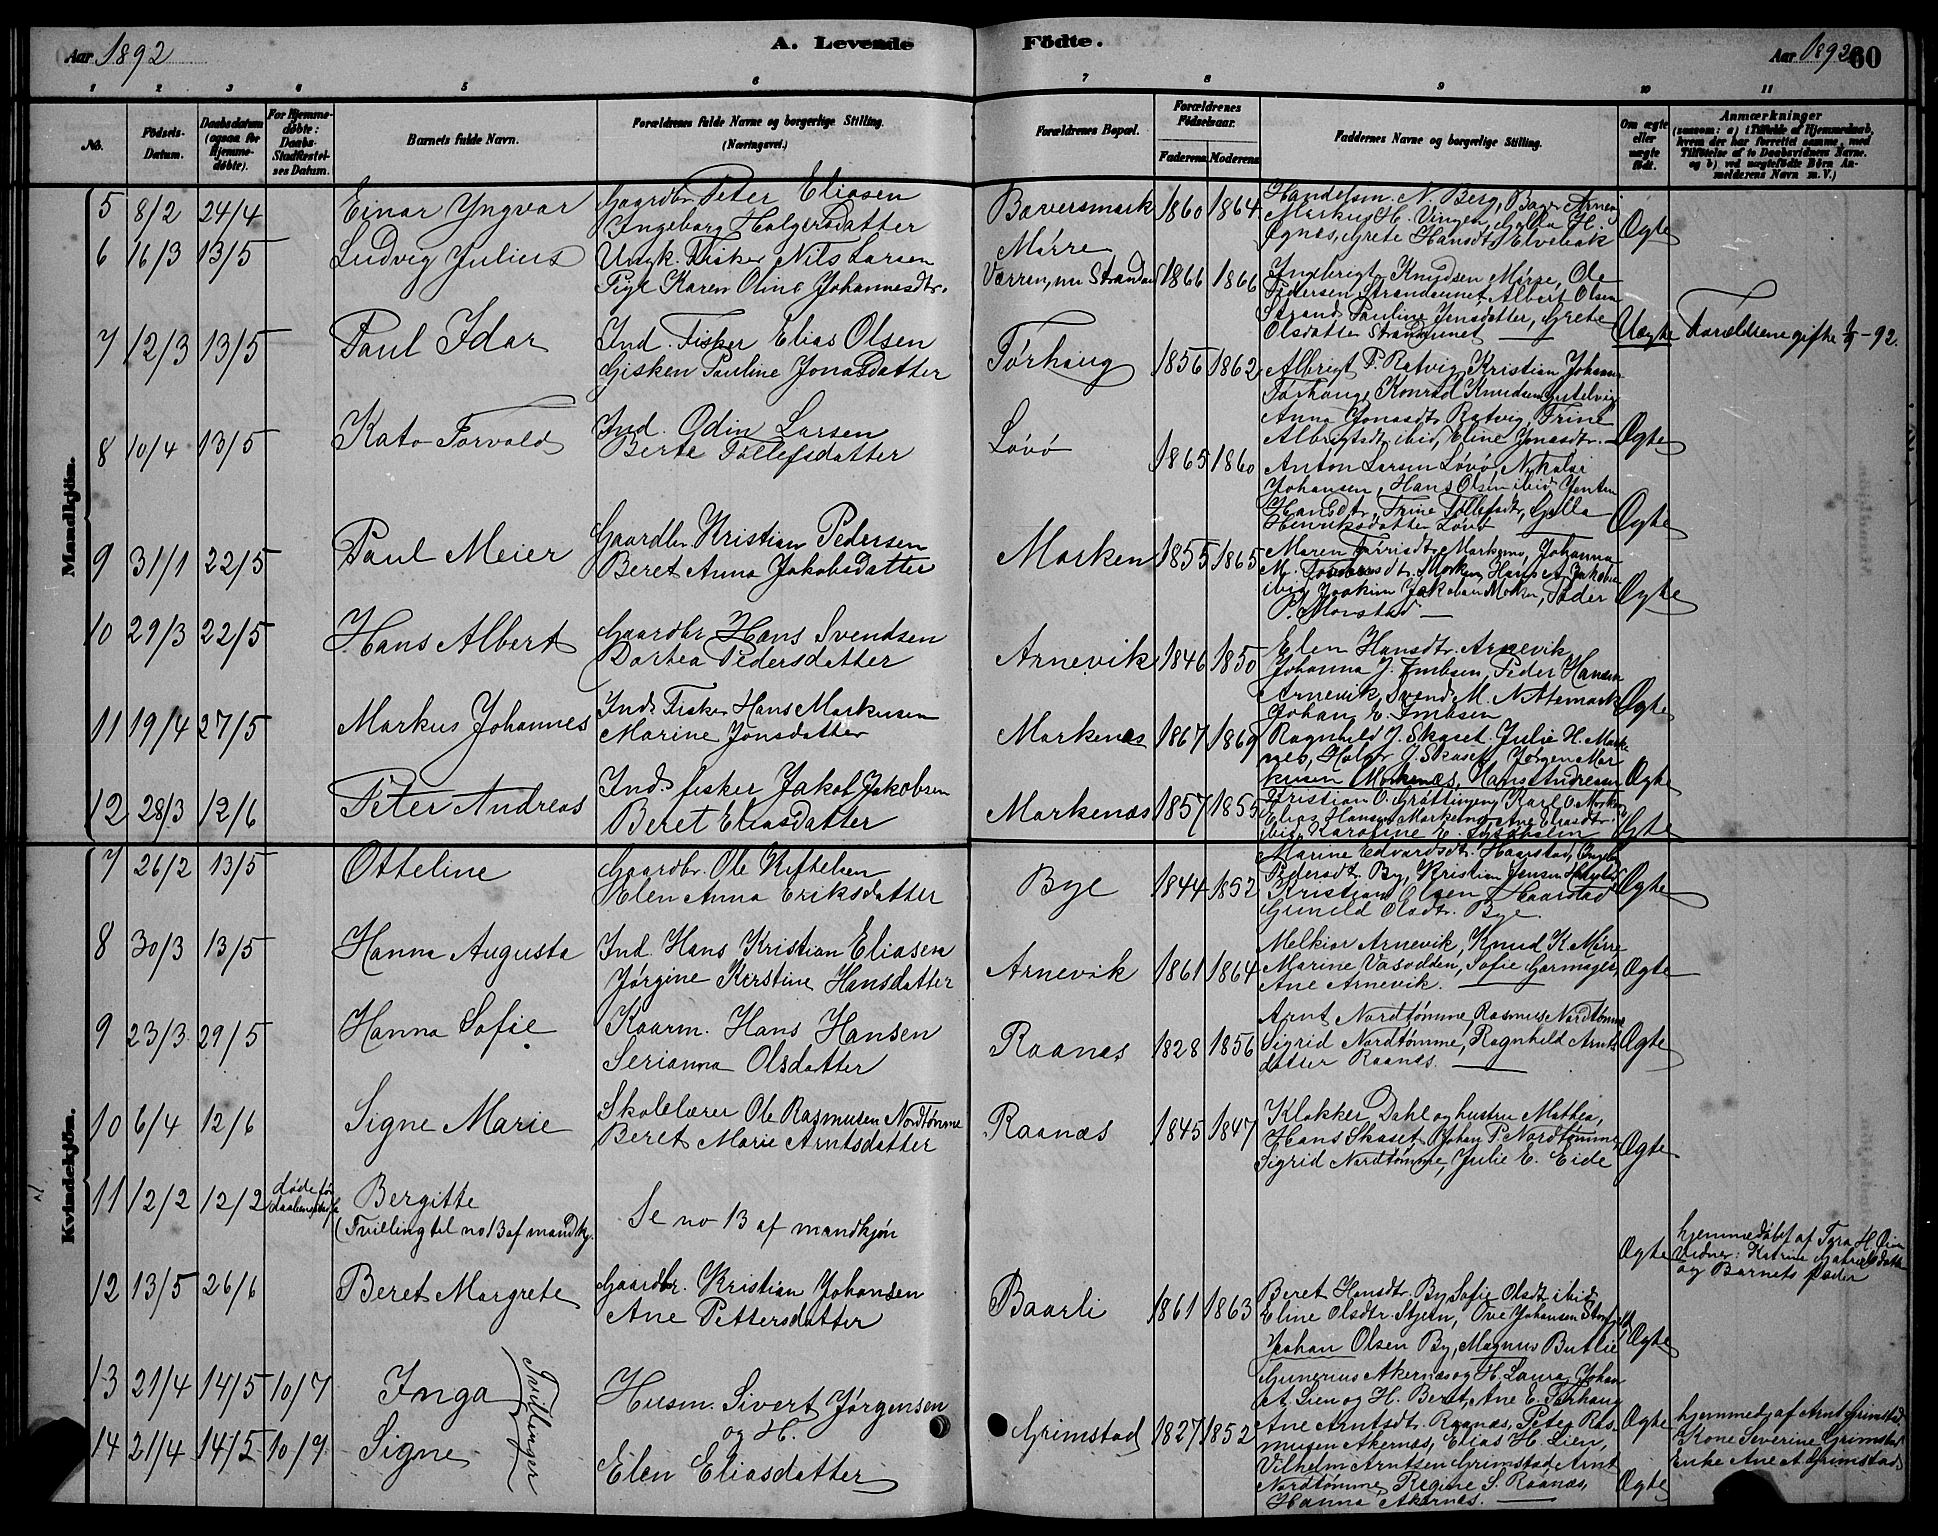 Aar 1892
A. Levende Födte.
Aar 1892
60
1 2 3 4 5 6 7 8 9 10 11
No.
Födsels-Datum.
Daabsdatum (ogsaa for Hjemmedøbte).
For Hjemmedøbte: Daabs-Stadfæstelses Datum.
Barnets fulde Navn.
Forældrenes fulde Navne og borgerlige Stilling. (Næringsvei.)
Forældrenes Bopæl.
Forældrenes Födselsaar.
Faderens Moderens
Faddernes Navne og borgerlige Stilling.
Om ægte eller uægte født.
Anmærkninger
(saasom: a) i Tilfælde af Hjemmedaab, hvem der har forrettet samme, med Tilföielse af to Daabsvidners Navne. og b) ved uægtefödte Börn Anmelderens Navn m. V.)
Mandkjön.
5 8/2 24/4 Einar Yngvar
Gaardbr Peter Eliasen
Ingeborg Holgersdatter
Bæversmark 1860 1864
Handelsm. N. Berg,
Markus H. Vingen,
Grete Hansdtr Elvebak
Ægte
6 16/3 13/5 Ludvig Julius
Ungk. Fisker Nils Larsen
Pige Karen Oline Johannesdtr.
Mørre
1866 1866
Ingbrigt Knudsen Mørre, Ole
Pedersen Strandaunet, Albert Olsen
Strand, Pauline Jensdatter, Grete
Olsdatter Strandaunet
Uægte Forældrene gifte
92.
7 12/3 13/5 Paul Idar
Ind. Fisker Elias Olsen
Gisken Pauline Jonasdatter
Tørhaug 1856 1862
Albrigt P. Ratvig, Kristian Johans
Tørhaug, Konrad Knudsen
Anna Jonasdtr. Ratvig, Trine
Albrigtsdtr. ibid, Eline Jonasdtr.
Ægte
8 10/4 13/5 Kato Torvald
Ind. Odin Larsen
Berte Tollefsdatter
Løvø 1865 1860
Anton Larsen Løvø, Nikolai
Johansen, Hans Olsen ibid, Jenten
Hansdtr, Trine Tollefsdtr,
Henriksdatter Løvø
Ægte
9 31/1 22/5 Paul Meier
Gaardbr Kristian Pedersen
Beret Anna Jakobsdatter
Morken 1855 1865
Maren Tørrisdtr. Johanna
Morken, Hans
ibid, Joakim Jakobsen Morken, Peder
P. Monstad
Ægte
10 29/3 22/5 Hans Albert
Gaardbr Hans Svendsen
Dortea Pedersdatter
Arnevik 1846 1850
Elen Hansdtr. Arnevik
Johanna J. Imbsen, Peder Hansen
Arnevik, Svend M.
Johan E. Imbsen
Ægte
11 19/4 27/5 Markus Johannes
Ind. Fisker Hans Markusen
Marine Jonsdatter
Markenæs 1867 1869
Ragnhild J. Skaset, Julie H. Marke
næs, J. Skaset, Jørgen Mar
kusen Markenæs, Hans Andreasen
Ægte
12 28/3 12/6 Peter Andreas
Ind. fisker Jakob Jakobsen
Beret Eliasdatter
Markenæs 1857 1855
Kristian O. Grøttingen, Karl O.
Elias Hansen Markenæs, Ane Eliasdtr.
ibid, Karoline E.
Ægte
Kvindekjön.
7 26/2 13/5 Otteline
Gaardbr. Ole
Elen Anna Eriksdatter
Bye 1844 1852
Marine Edvardsdtr. Haarstad,
Pedersdtr. By, Kristian Jensen
Kristian Olsen Haarstad
Gunild Olsdtr. Bye
Ægte
8 30/3 13/5 Hanna Augusta
Ind. Hans Kristian Eliasen
Jørgine Kerstine Hansdatter
Arnevik 1861 1864
Melkior Arnevik, Knud K. Mørre,
Marine Vasodden, Sofie
Ane Arnevik.
Ægte
9 23/3 29/5 Hanna Sofie
Kaarm. Hans Hansen
Serianna Olsdatter
Raanes 1828 1856
Arnt Nordtømme, Rasmus Nordtømme
Sigrid Nordtømme, Ragnhild Arnts
datter Raanes.
Ægte
10 6/4 12/6 Signe Marie
Skolelærer Ole Rasmusen Nordtømme
Beret Marie Arntsdatter
Raanes 1845 1847
Klokker Dahl og hustru Mathea,
Hans Skaset, Johan P. Nordtømme
Sigrid Nordtømme, Julie E. Eide
Ægte
11 12/2 12/2 døde før
Bergitte
(Tvilling til no 13 af mandkj.
Se no 13 af mandkjøn
Ægte
hjemmedøbt af
Vidner: Katrine Gabrielsdatter
og Barnets fader
12 13/5 26/6 Beret Margrete
Gaardbr. Kristian Johansen
Ane Pettersdatter
Baarli 1861 1863
Beret Hansdtr. By, Sofie Olsdt ibid
Eline Olsdtr. Stjern, Ove Johansen
Johan Olsen By, Magnus Butlie
Ægte
13 21/4 14/5 10/7 Inga
Tvillinger
Husm. Sivert Jørgensen
og H.
Elen Eliasdatter
Grimstad 1827 1852
Gunerius Akernæs og H. Laura, Johan
A. Lien og H. Beret, Ane E. Tørhaug
Ane Arntsdt. Raanæs, Peter Ras-
musen Akernæs, Elias H. Lien,
Vilhelm Arntsen Grimstad, Arnt
Nordtømme, Regine S. Raanæs,
Hanna Akernæs.
Ægte
hjemmedj. af Arnt Grimstad
Kone Severine Grimstad
Enke Ane A. Grimstad
14 21/4 14/5 10/7 Signe
Ægte